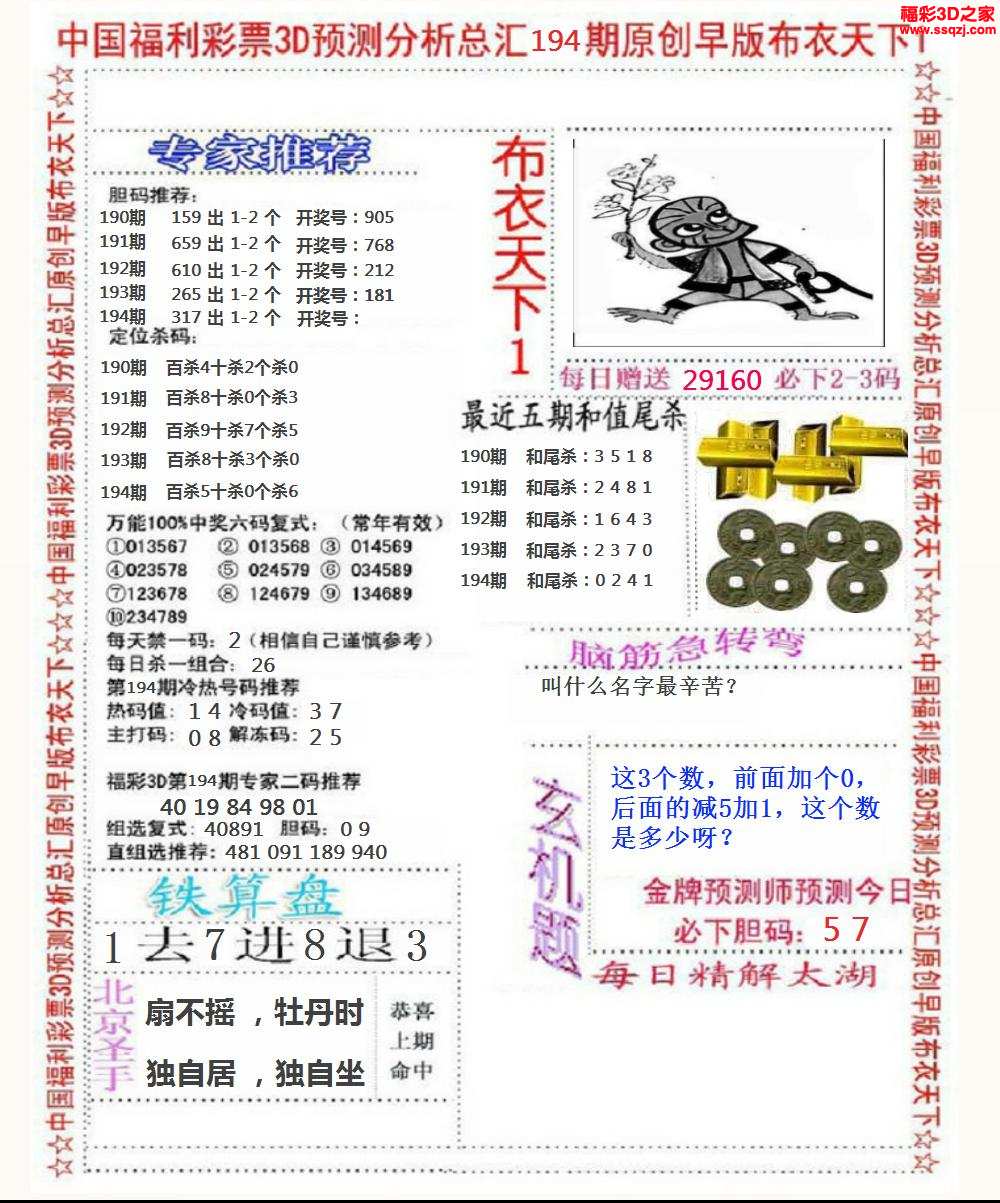 福彩3D之家
www.ssqzj.com
中国福利彩票3D预测分析总汇194期原创早版布衣天下1
☆☆中国福利彩票3D预测分析总汇原创早版布衣天下☆☆☆中国福利彩票3D预测分析总汇原创早版布衣天下☆☆
专家推荐
胆码推荐:
190期 159 出 1-2 个 开奖号：905
191期 659 出 1-2 个 开奖号：768
192期 610 出 1-2 个 开奖号：212
193期 265 出 1-2 个 开奖号：181
194期 317 出 1-2 个 开奖号：
定位杀码:
190期 百杀4十杀2个杀0
191期 百杀8十杀0个杀3
192期 百杀9十杀7个杀5
193期 百杀8十杀3个杀0
194期 百杀5十杀0个杀6
万能100%中奖六码复式：（常年有效）
①013567 ② 013568 ③ 014569
④023578 ⑤ 024579 ⑥ 034589
⑦123678 ⑧ 124679 ⑨ 134689
⑩234789
每天禁一码：2（相信自己谨慎参考）
每日杀一组合：26
第194期冷热号码推荐
热码值：1 4 冷码值：3 7
主打码：0 8 解冻码：2 5
福彩3D第194期专家二码推荐
40 19 84 98 01
组选复式：40891 胆码：0 9
直组选推荐：481 091 189 940
铁算盘
1去7进8退3
北京圣手
扇不摇 ，牡丹时
独自居 ，独自坐
恭喜
上期
命中
布衣天下1
每日赠送 29160 必下2-3码
最近五期和值尾杀
190期 和尾杀：3 5 1 8
191期 和尾杀：2 4 8 1
192期 和尾杀：1 6 4 3
193期 和尾杀：2 3 7 0
194期 和尾杀：0 2 4 1
脑筋急转弯
叫什么名字最辛苦?
玄机题
这3个数，前面加个0，
后面的减5加1，这个数
是多少呀?
金牌预测师预测今日
必下胆码：5 7
每日精解太湖
☆☆中国福利彩票3D预测分析总汇原创早版布衣天下☆☆☆中国福利彩票3D预测分析总汇原创早版布衣天下☆☆